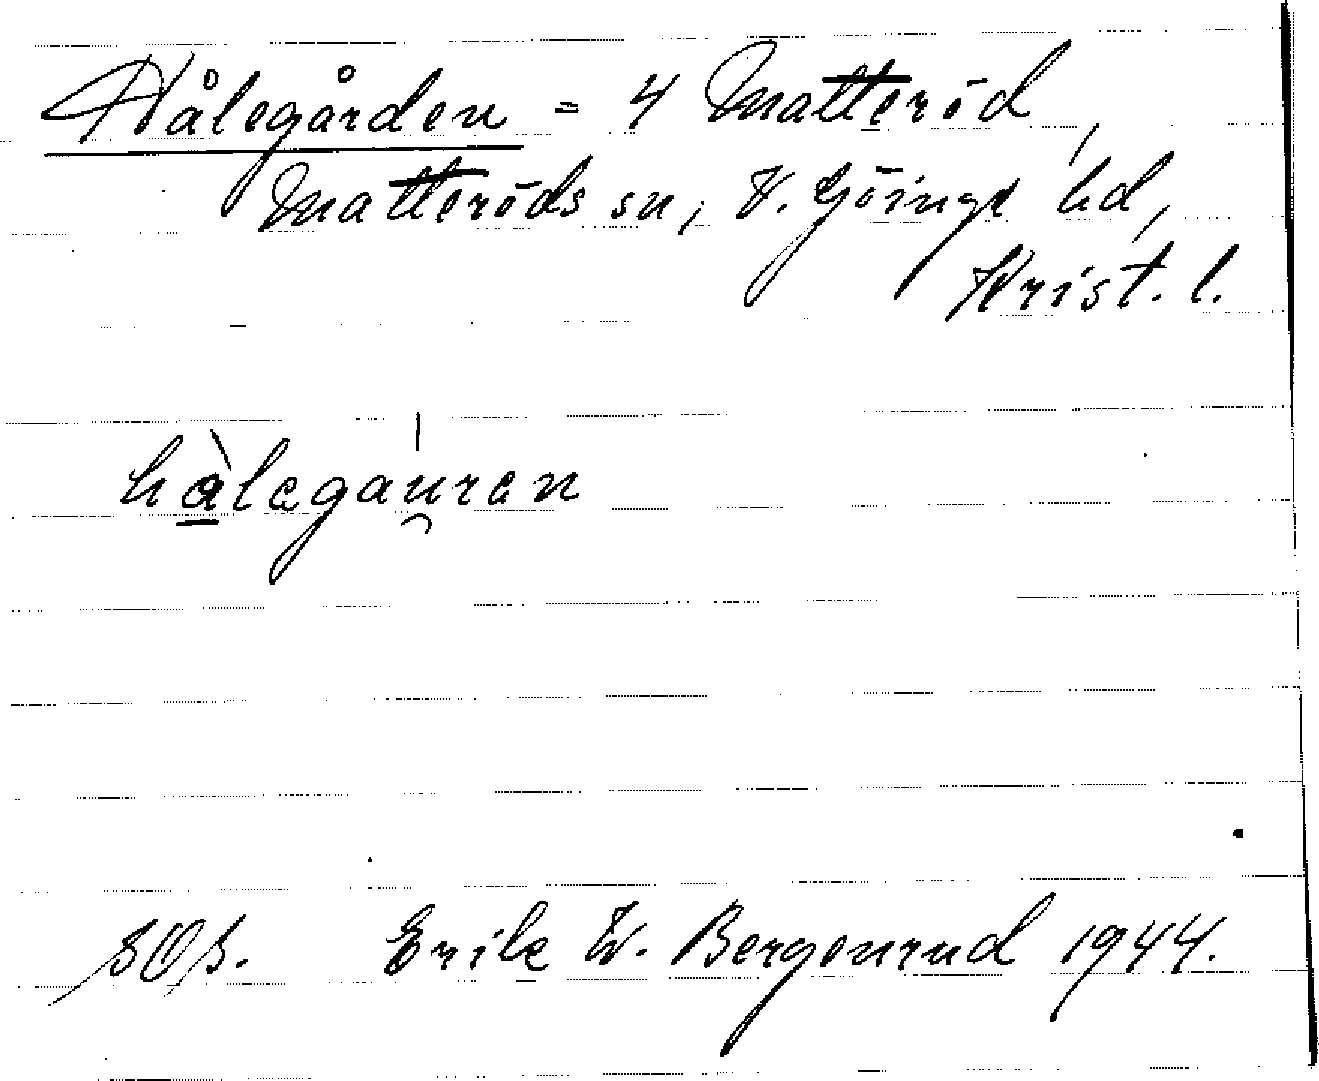 Hålegården = 4 Matteröd,
Matteröds sn, V. Göinge hd,
Krist. l.
hàlegau̯ren
Erik W. Bergenrud 1944.